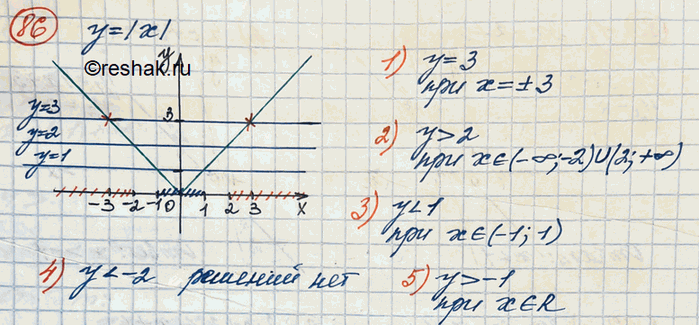 86
y=|x|
©reshak.ru
y
3
y=3
y=2
y=1
-3 -2 -1 0 1 2 3 x
1) y=3
при x=±3
2) y>2
при x∈(-∞;-2)∪(2;+∞)
3) y<1
при x∈(-1;1)
4) y<-2 решений нет
5) y>-1
при x∈R